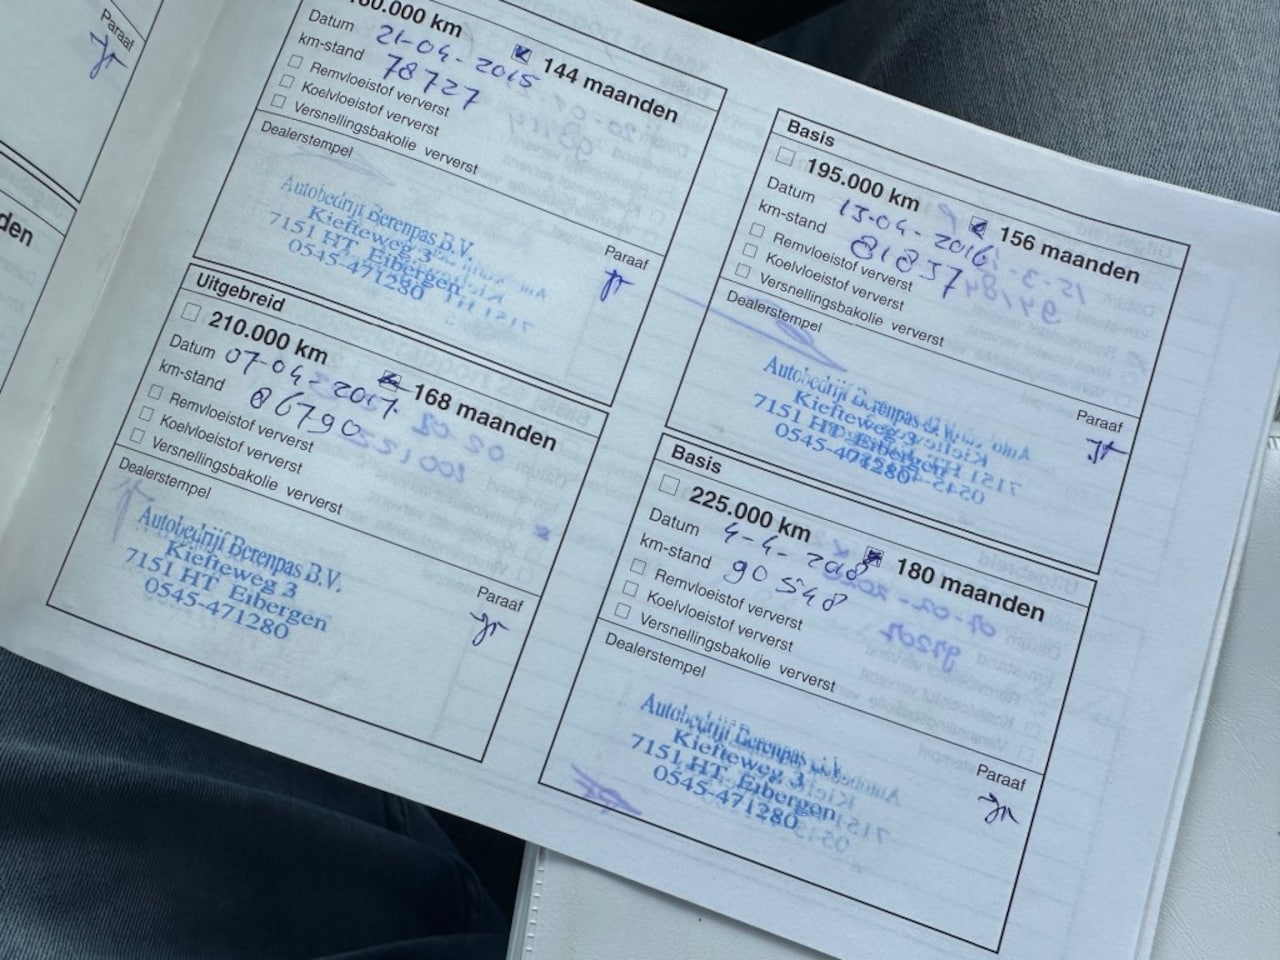 Paraaf
den
180.000 km
144 maanden
Datum 21-04-2015
km-stand 78727
Remvloeistof ververst
Koelvloeistof ververst
Versnellingsbakolie ververst
Dealerstempel
Autobedrijf Berenpas B.V.
Kiefteweg 3
7151 HT Eibergen
0545-471280
Paraaf
Basis
195.000 km
156 maanden
Datum 13-04-2016
km-stand 81837
Remvloeistof ververst
Koelvloeistof ververst
Versnellingsbakolie ververst
Dealerstempel
Autobedrijf Berenpas B.V.
Kiefteweg 3
7151 HT Eibergen
0545-471280
Paraaf
Uitgebreid
210.000 km
168 maanden
Datum 07-04-2017
km-stand 86790
Remvloeistof ververst
Koelvloeistof ververst
Versnellingsbakolie ververst
Dealerstempel
Autobedrijf Berenpas B.V.
Kiefteweg 3
7151 HT Eibergen
0545-471280
Paraaf
Basis
225.000 km
180 maanden
Datum 4-4-2018
km-stand 90548
Remvloeistof ververst
Koelvloeistof ververst
Versnellingsbakolie ververst
Dealerstempel
Autobedrijf Berenpas B.V.
Kiefteweg 3
7151 HT Eibergen
0545-471280
Paraaf